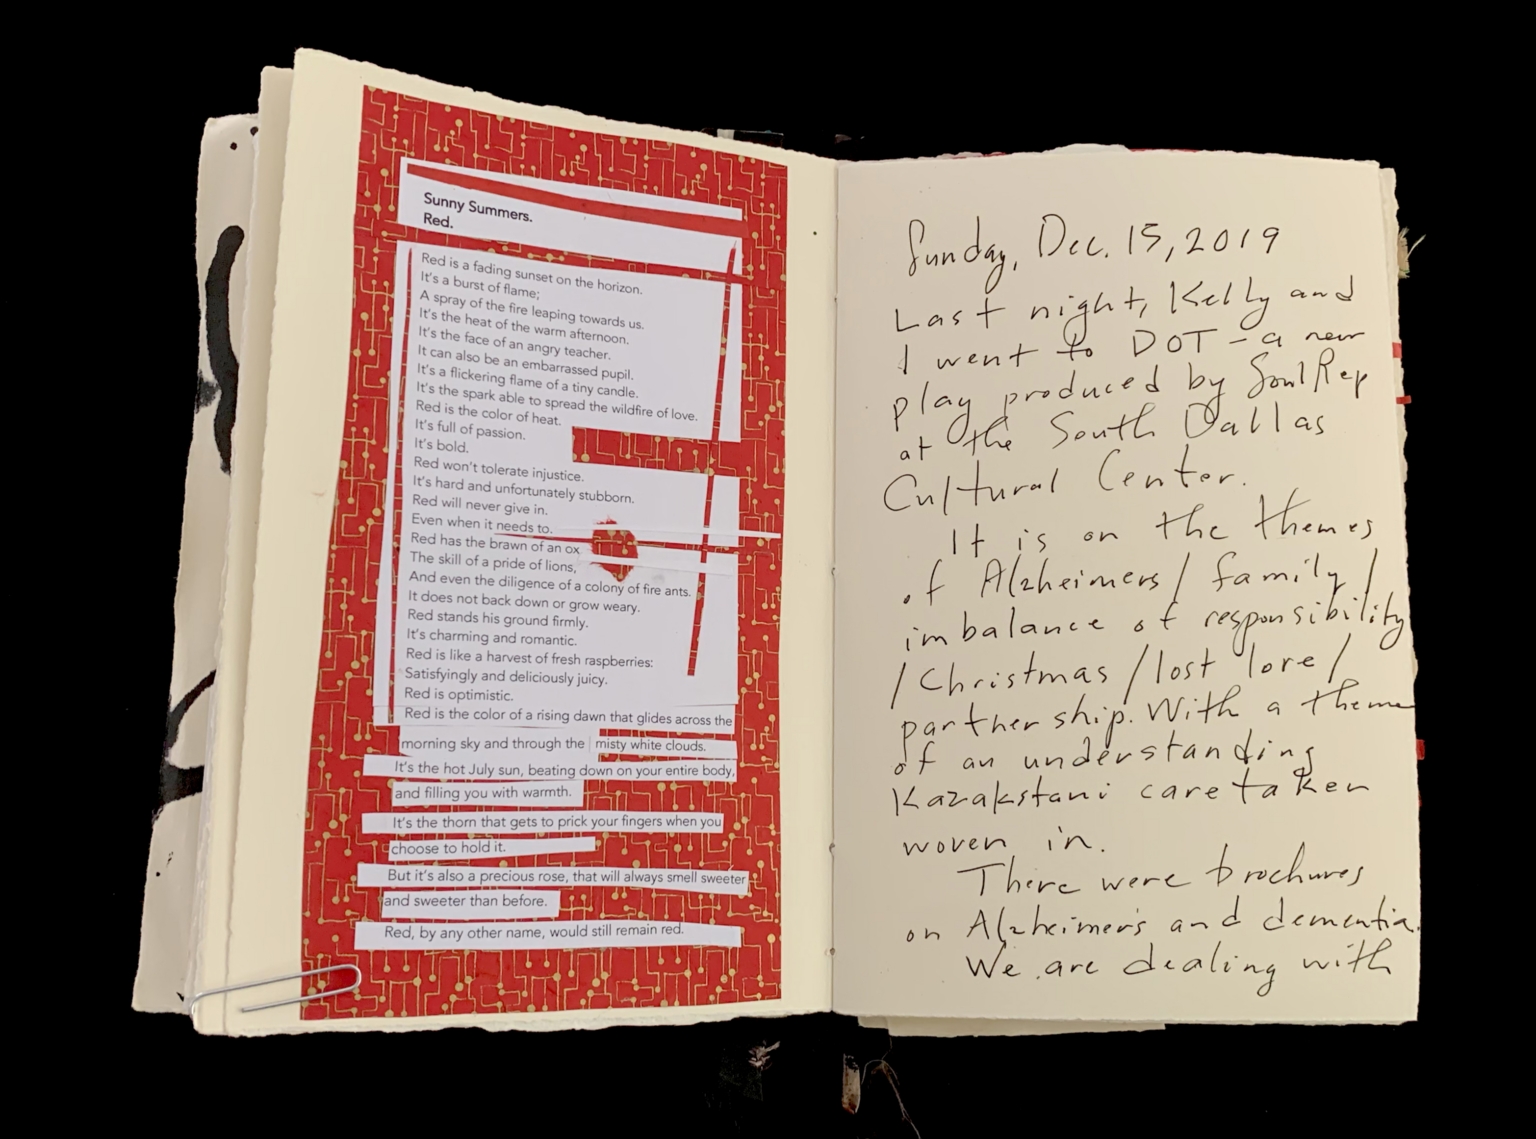 Sunny Summers.
Red.
Red is a fading sunset on the horizon.
It's a burst of flame;
A spray of the fire leaping towards us.
It's the heat of the warm afternoon.
It's the face of an angry teacher.
It can also be an embarrassed pupil.
It's a flickering flame of a tiny candle.
It's the spark able to spread the wildfire of love.
Red is the color of heat.
It's full of passion.
It's bold.
Red won't tolerate injustice.
It's hard and unfortunately stubborn.
Red will never give in.
Even when it needs to.
Red has the brawn of an ox,
The skill of a pride of lions,
And even the diligence of a colony of fire ants.
It does not back down or grow weary.
Red stands his ground firmly.
It's charming and romantic.
Red is like a harvest of fresh raspberries:
Satisfyingly and deliciously juicy.
Red is optimistic.
Red is the color of a rising dawn that glides across the
morning sky and through the misty white clouds.
It's the hot July sun, beating down on your entire body,
and filling you with warmth.
It's the thorn that gets to prick your fingers when you
choose to hold it.
But it's also a precious rose, that will always smell sweeter
and sweeter than before.
Red, by any other name, would still remain red.
Sunday, Dec. 15, 2019
Last night, Kelly and
I went to DOT - a new
play produced by SoulRep
at the South Dallas
Cultural Center.
It is on the themes
of Alzheimers / family /
imbalance of responsibility
/ Christmas / lost love /
partnership. With a theme
of an understanding
Kazakstani caretaker
woven in.
There were brochures
on Alzheimer's and dementia.
We are dealing with